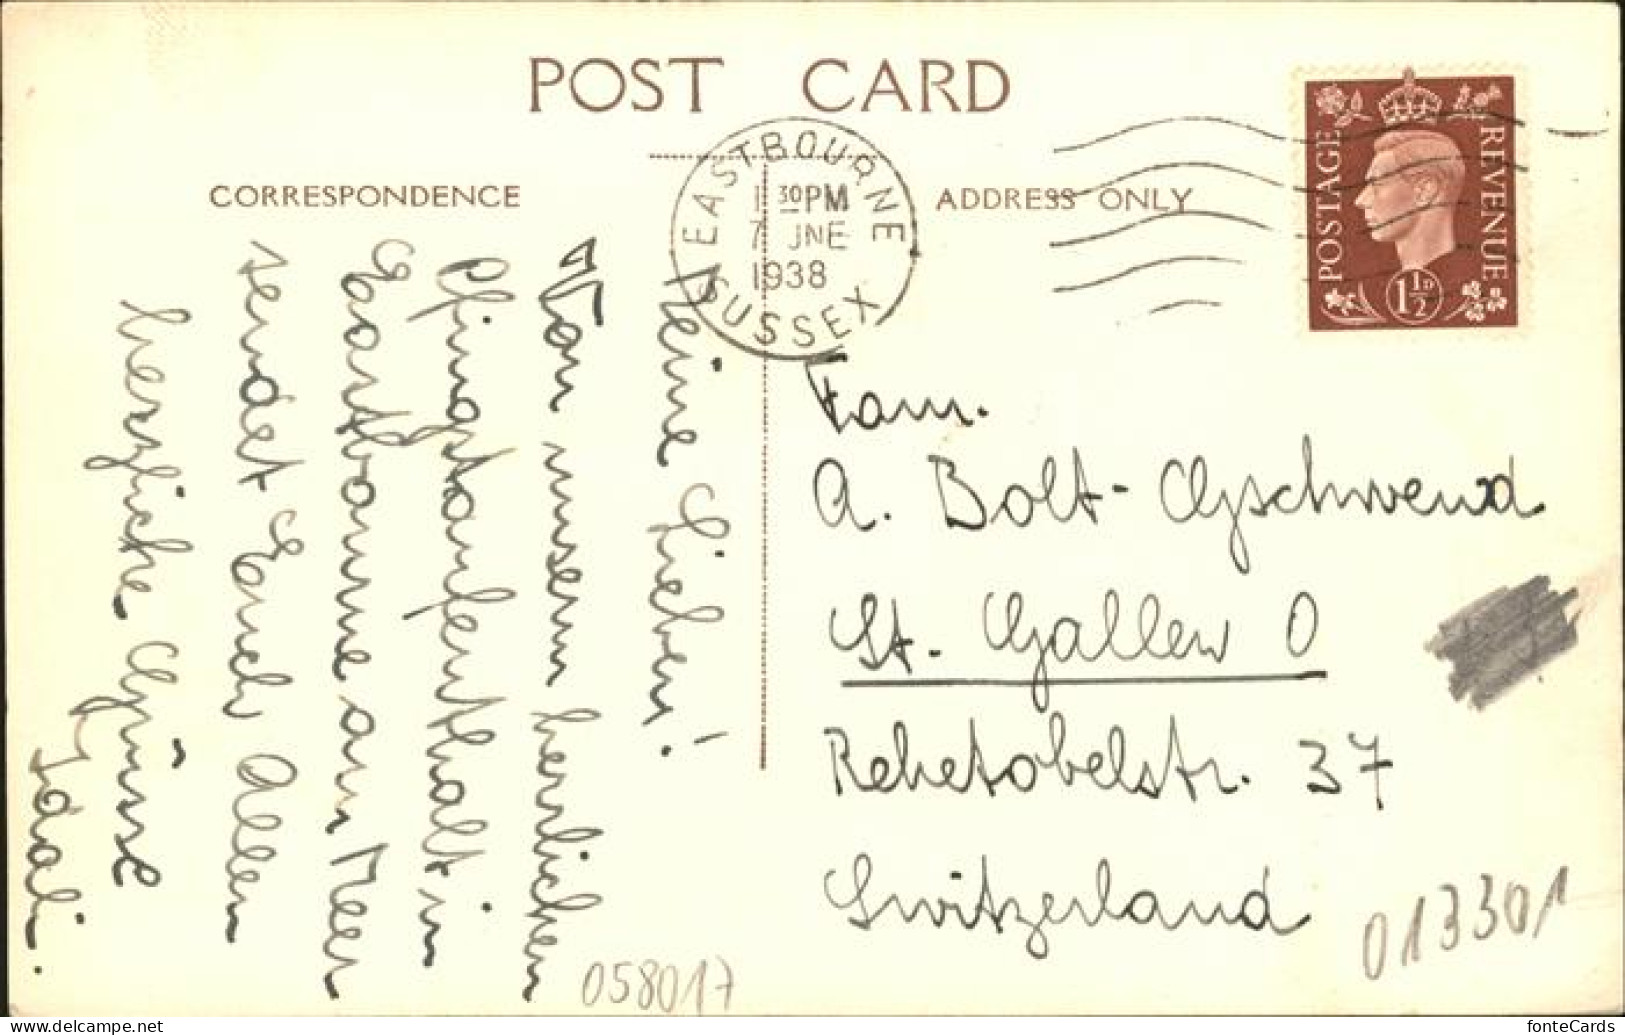 POST CARD
CORRESPONDENCE
ADDRESS ONLY
EASTBOURNE
1 30 PM
7 JNE
1938
SUSSEX
POSTAGE
REVENUE
1½D
Meine Lieben!
Von unserm herrlichen
Pfingstaufenthalt in
Eastbourne am Meer
sendet Euch Allen
herzliche Grüsse
Fam.
A. Bolt-Gschwend
St. Gallen O
Rehetobelstr. 37
Switzerland
058017
013301
www.delcampe.net
fonteCards